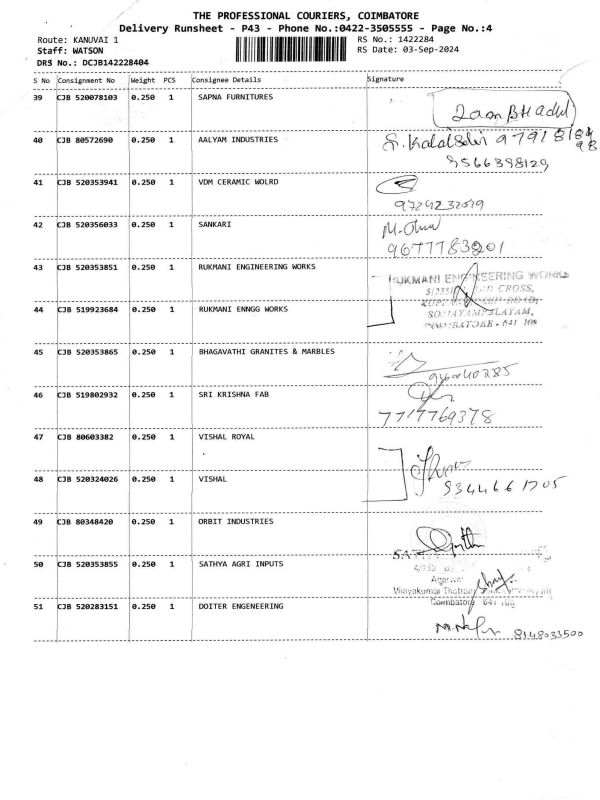 THE PROFESSIONAL COURIERS, COIMBATORE
Delivery Runsheet - P43 - Phone No.:0422-3505555 - Page No.:4
Route: KANUVAI 1 RS No.: 1422284
Staff: WATSON RS Date: 03-Sep-2024
DRS No.: DCJB142228404
S No Consignment No Weight PCS Consignee Details Signature
39 CJB 520078103 0.250 1 SAPNA FURNITURES
40 CJB 80572690 0.250 1 AALYAM INDUSTRIES
9566398129
41 CJB 520353941 0.250 1 VDM CERAMIC WOLRD
42 CJB 520356033 0.250 1 SANKARI
9677783201
43 CJB 520353851 0.250 1 RUKMANI ENGINEERING WORKS
RUKMANI ENGINEERING WORKS
CROSS,
44 CJB 519923684 0.250 1 RUKMANI ENNGG WORKS
SOMAYAMPALAYAM,
COIMBATORE - 641 108
45 CJB 520353865 0.250 1 BHAGAVATHI GRANITES & MARBLES
46 CJB 519802932 0.250 1 SRI KRISHNA FAB
7717769378
47 CJB 80603382 0.250 1 VISHAL ROYAL
48 CJB 520324026 0.250 1 VISHAL
9344661705
49 CJB 80348420 0.250 1 ORBIT INDUSTRIES
50 CJB 520353855 0.250 1 SATHYA AGRI INPUTS
Agarwal
Vijayakumar Thottam
51 CJB 520283151 0.250 1 DOITER ENGENEERING
Coimbatore 641 108
8148033500